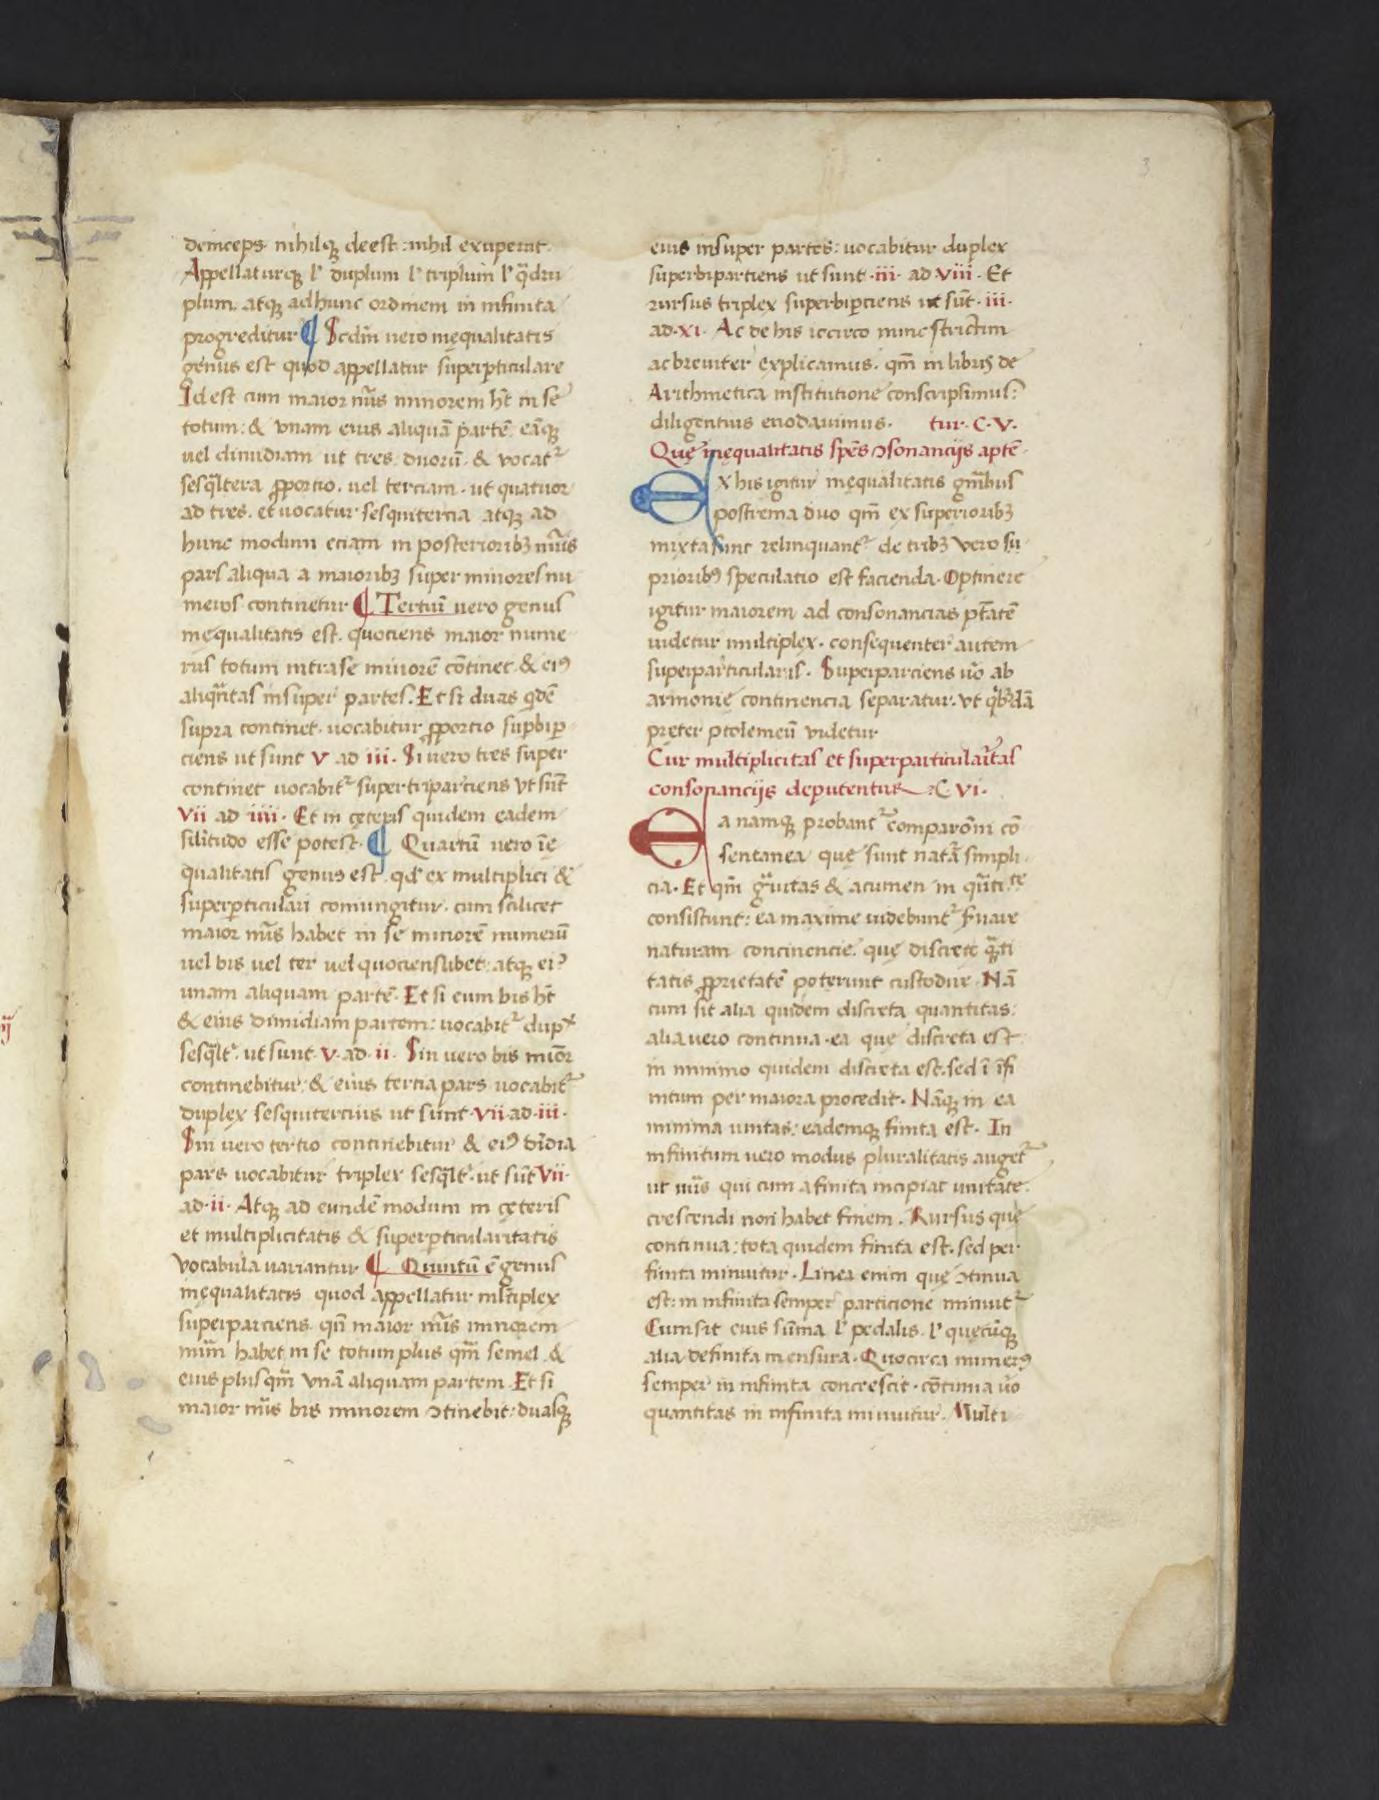 3
deinceps nihilqꝫ deest: nihil exuperat.
Appellaturqꝫ lꝰ duplum lꝰ triplum lꝰ q̄dru
plum. atqꝫ ad hunc ordinem in infinita
progreditur ¶ Scdm̄ uero inęqualitatis
genus est quod appellatur superꝑticulare
Id est cum maior nūs minorem ht̄ in se
totum: & unam eius aliquā partē. eāqꝫ
uel dimidiam ut tres. duorū. & vocatᷣ
sesq̄ltera ꝓportio. uel terciam. ut quatuor
ad tres. et uocatur sesquitercia atqꝫ ad
hunc modum eciam in posterioribꝫ nūis
pars aliqua a maioribꝫ super minores nu
meros continetur ¶ Tertiū uero genus
inęqualitatis est. quociens maior nume
rus totum intra se minorē cōtinet. & eiꝰ
aliqn̄tas insuper partes. Et si duas qͥdē
supra continet. uocabitur ꝓportio suꝑbiꝑ
ciens ut sunt v ad iii. Si uero tres super
continet uocabitᷣ supertriparciens ut sūt
vii ad iiii. Et in cęteris quidem eadem
silitudo esse potest. ¶ Quartū uero īę
qualitatis genus est. qd̄ ex multiplici &
superꝑticulari coniungitur. cum scilicet
maior nūs habet in se minorē numerū
uel bis uel ter uel quocienslibet. atqꝫ eiꝰ
unam aliquam partē. Et si eum bis ht̄
& eius dimidiam partem: uocabitᷣ dupͯ
sesq̄ltᷣ. ut sunt. v. ad. ii. Sin uero bis miōr
continebitur. & eius tercia pars uocabitᷣ
duplex sesquitercius ut sunt. vii. ad. iii.
Sin uero tertio continebitur & eiꝰ dīdia
pars uocabitur triplex sesq̄ltᷣ. ut sūt vii.
ad. ii. Atqꝫ ad eundē modum in cęteris
et multiplicitatis & superꝑticularitatis
vocabula uariantur ¶ Quintū ē genus
inęqualitatis quod appellatur ml̄tiplex
superparciens. qn̄ maior nūs minorem
nūm habet in se totum plus qm̄ semel. &
eius plus qm̄ vnā aliquam partem. Et si
maior nūs bis minorem ↄtinebit: duasqꝫ
eius insuper partes: uocabitur duplex
superbiparciens ut sunt. iii. ad viii. Et
rursus triplex superbiꝑciens ut sūt. iii.
ad. xi. Ac de his iccirco nunc strictim
ac breuiter explicamus. qm̄ in libris de
Arithmetica institutione conscripsimus:
diligentius enodauimus. tur. C. V.
Quę inęqualitatis spēs ↄsonancijs aptē
Ex his igitur inęqualitatis gn̄ibus
postrema duo qm̄ ex superioribꝫ
mixta sunt relinquantᷣ de tribꝫ vero su
prioribꝰ speculatio est facienda. Optinere
igitur maiorem ad consonancias ptātē
uidetur multiplex. consequenter autem
superparticularis. Superparciens uo ab
armonię continencia separatur. vt qͥbꝰdā
pręter ptolemeū videtur
Cur multiplicitas et superparticularītas
consonancijs deputentur. C VI.
Ea namqꝫ probantᷣ comparōni cō
sentanea quę sunt natā simpli
cia. Et qm̄ gͣuitas & acumen in qn̄titͣte
consistunt: ea maxime uidebuntᷣ s̓uare
naturam concinencie. quę discrete q̄ti
tatis ꝓprietatē poterunt custodire. Nā
cum sit alia quidem discreta quantitas:
alia uero continua. ea quę discreta est
in minimo quidem discreta est. sed ī īfi
nitum per maiora procedit. Nāqꝫ in ea
minima unitas: eademqꝫ finita est. In
infinitum uero modus pluralitatis augetᷣ
ut nūs qui cum a finita incipiat unitate.
crescendi non habet finem. Rursus quę
continua: tota quidem finita est. sed per
finita minuitur. Linea enim quę ↄtinua
est: in infinita semper particione minuitᷣ
Cum sit eius sūma lꝰ pedalis. lꝰ quęcūqꝫ
alia definita mensura. Quocirca numerꝰ
semper in infinita concrescit. cōtinua uo
quantitas in infinita minuitur. Multi